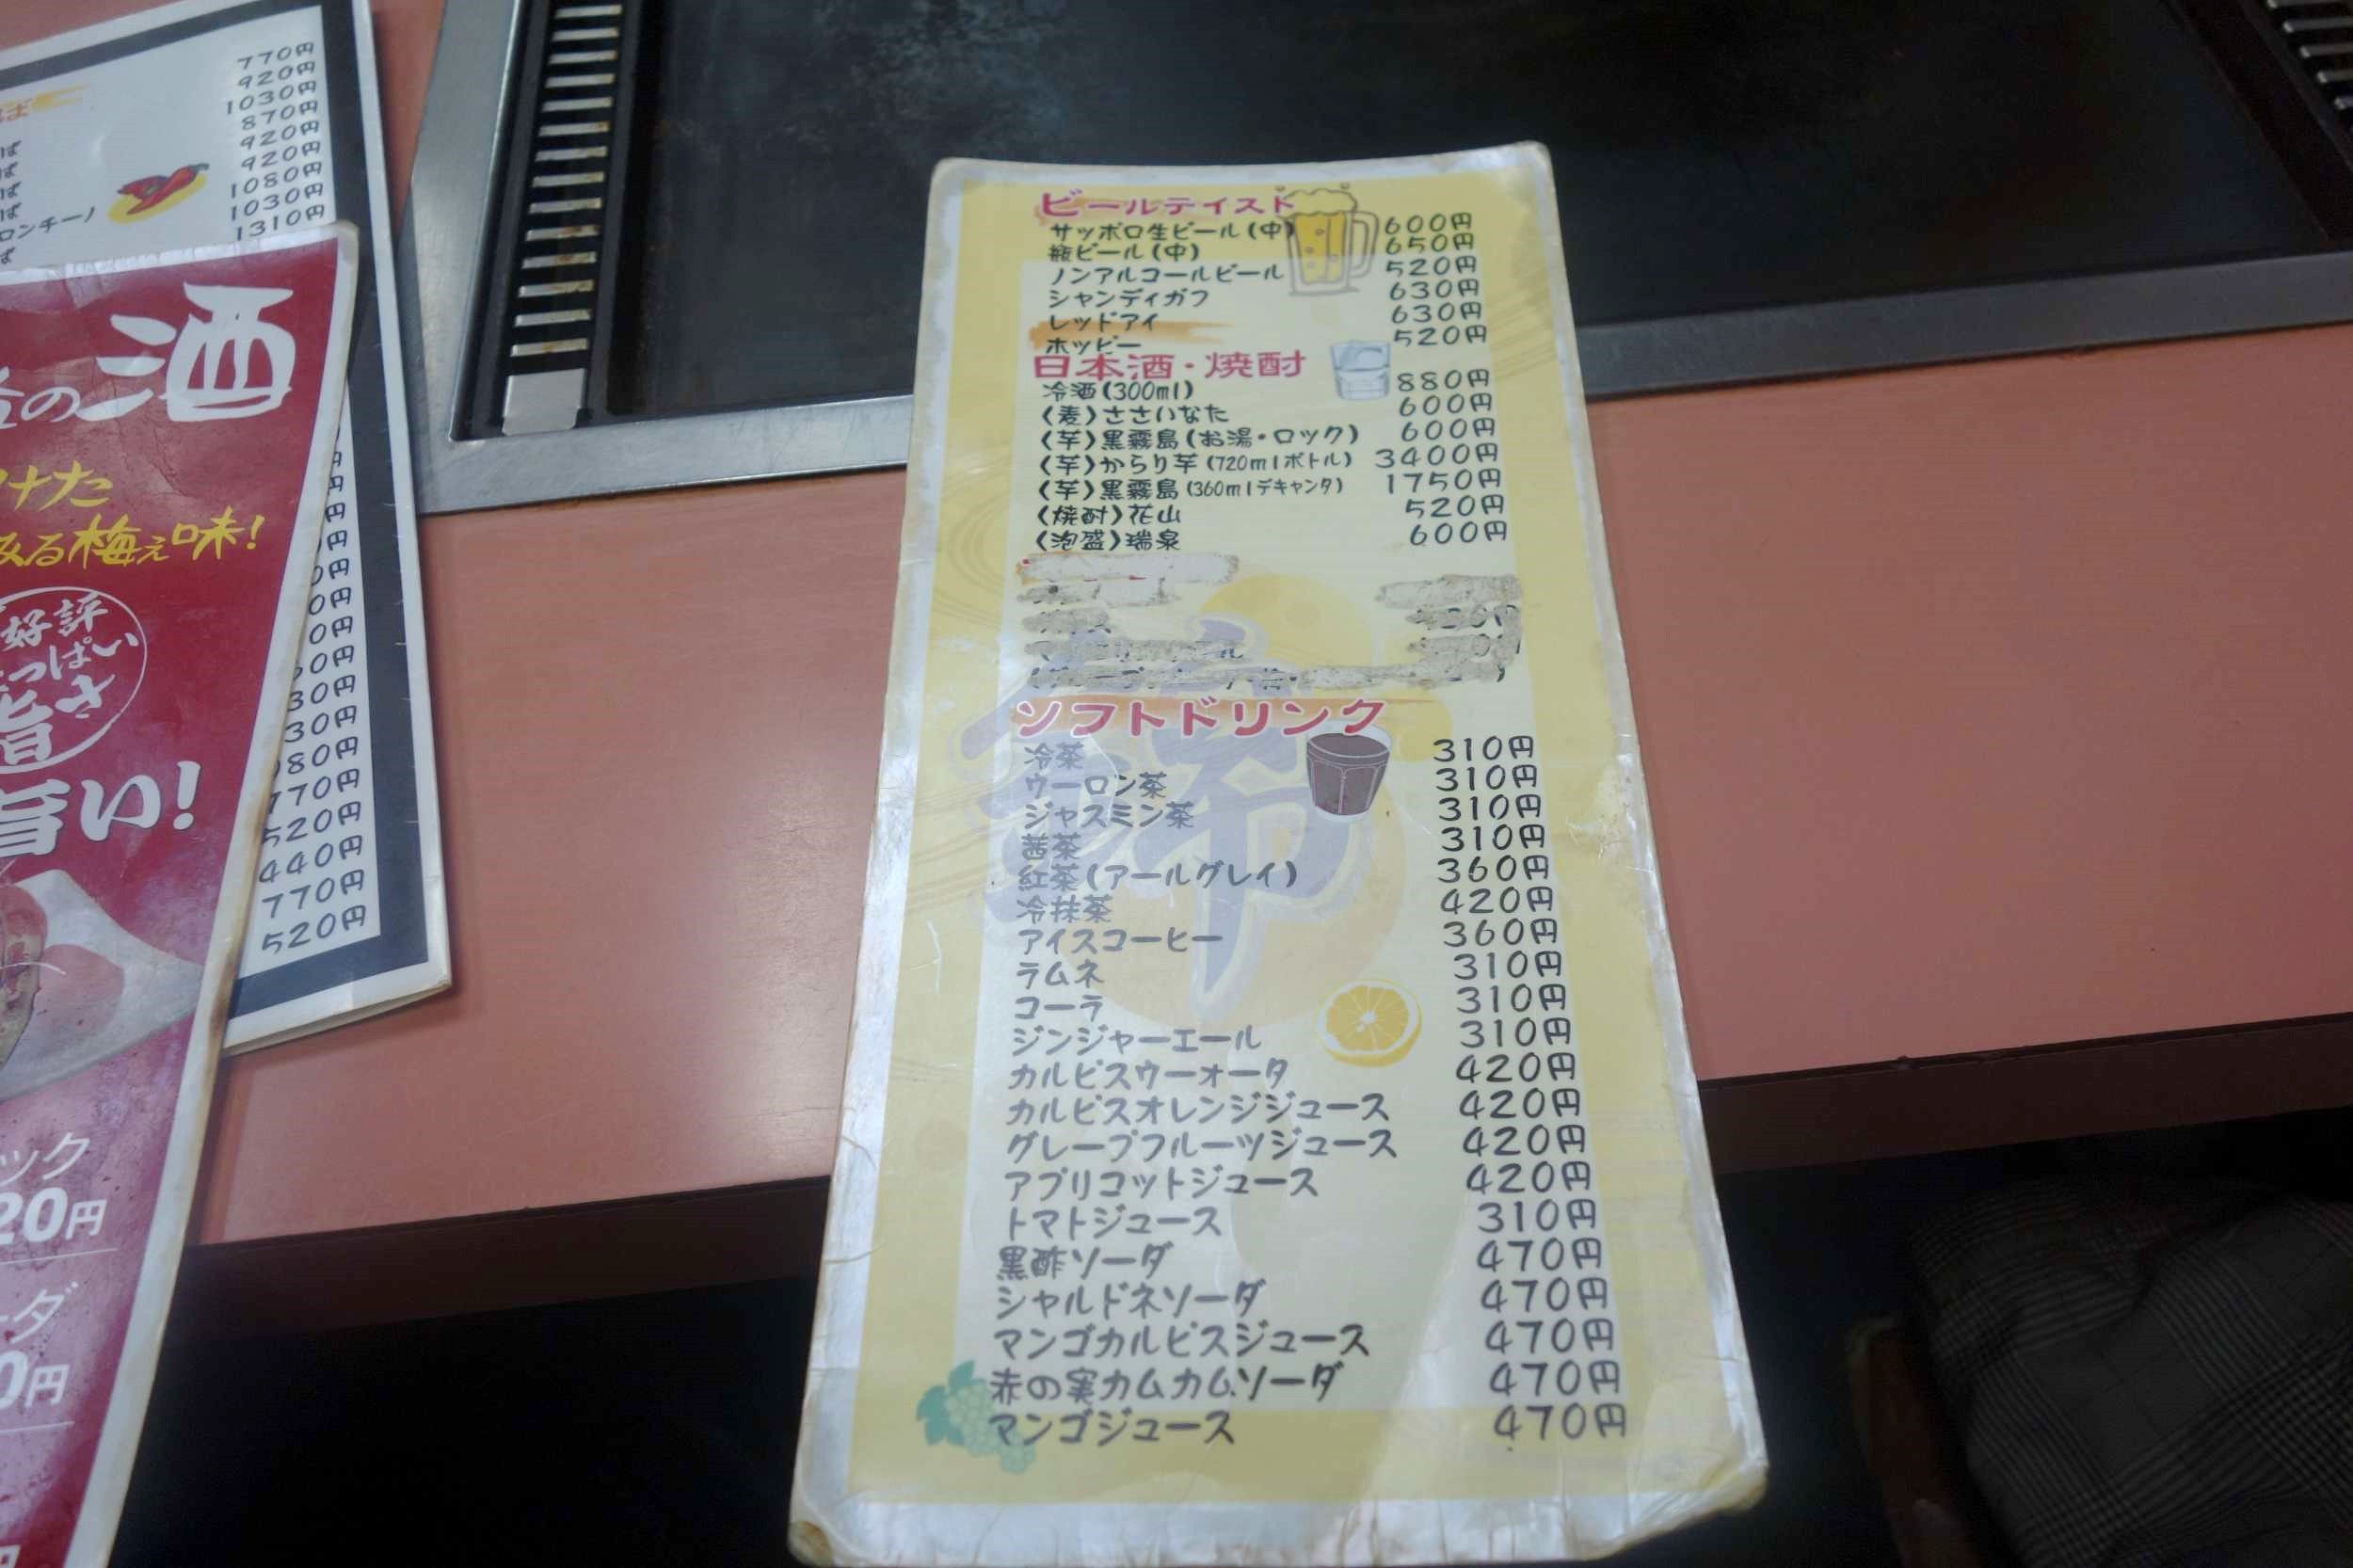 770円
920円
1030円
870円
920円
920円
1080円
1030円
1310円
ロンチーノ
の酒
けた
みる梅ぇ味!
好評
いっぱい
旨さ
旨い!
ック
20円
ーダ
0円
30円
30円
80円
770円
520円
440円
770円
520円
ビールテイスト
サッポロ生ビール(中) 600円
瓶ビール(中) 650円
ノンアルコールビール 520円
シャンディガフ 630円
レッドアイ 630円
ホッピー 520円
日本酒・焼酎
冷酒(300ml) 880円
〈麦〉ささいなた 600円
〈芋〉黒霧島(お湯・ロック) 600円
〈芋〉からり芋(720mlボトル) 3400円
〈芋〉黒霧島(360mlデキャンタ) 1750円
〈焼酎〉花山 520円
〈泡盛〉瑞泉 600円
ソフトドリンク
冷茶 310円
ウーロン茶 310円
ジャスミン茶 310円
茜茶 310円
紅茶(アールグレイ) 360円
冷抹茶 420円
アイスコーヒー 360円
ラムネ 310円
コーラ 310円
ジンジャーエール 310円
カルピスウーォータ 420円
カルピスオレンジジュース 420円
グレープフルーツジュース 420円
アプリコットジュース 420円
トマトジュース 310円
黒酢ソーダ 470円
シャルドネソーダ 470円
マンゴカルピスジュース 470円
赤の実カムカムソーダ 470円
マンゴジュース 470円